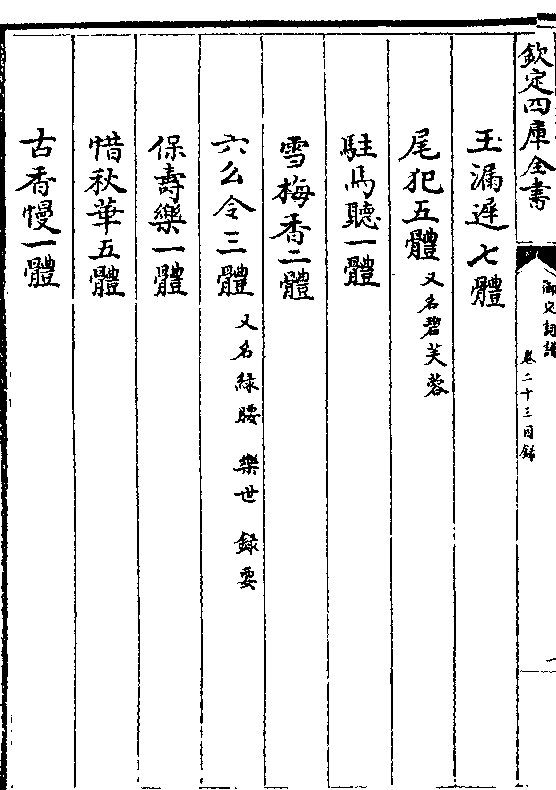 欽定四庫全書
御定詞譜
卷二十三目錄
玉漏遲七體
尾犯五體 又名碧芙蓉
駐馬聽一體
雪梅香二體
六么令三體 又名緑腰 樂世 録要
保壽樂一體
惜秋華五體
古香慢一體